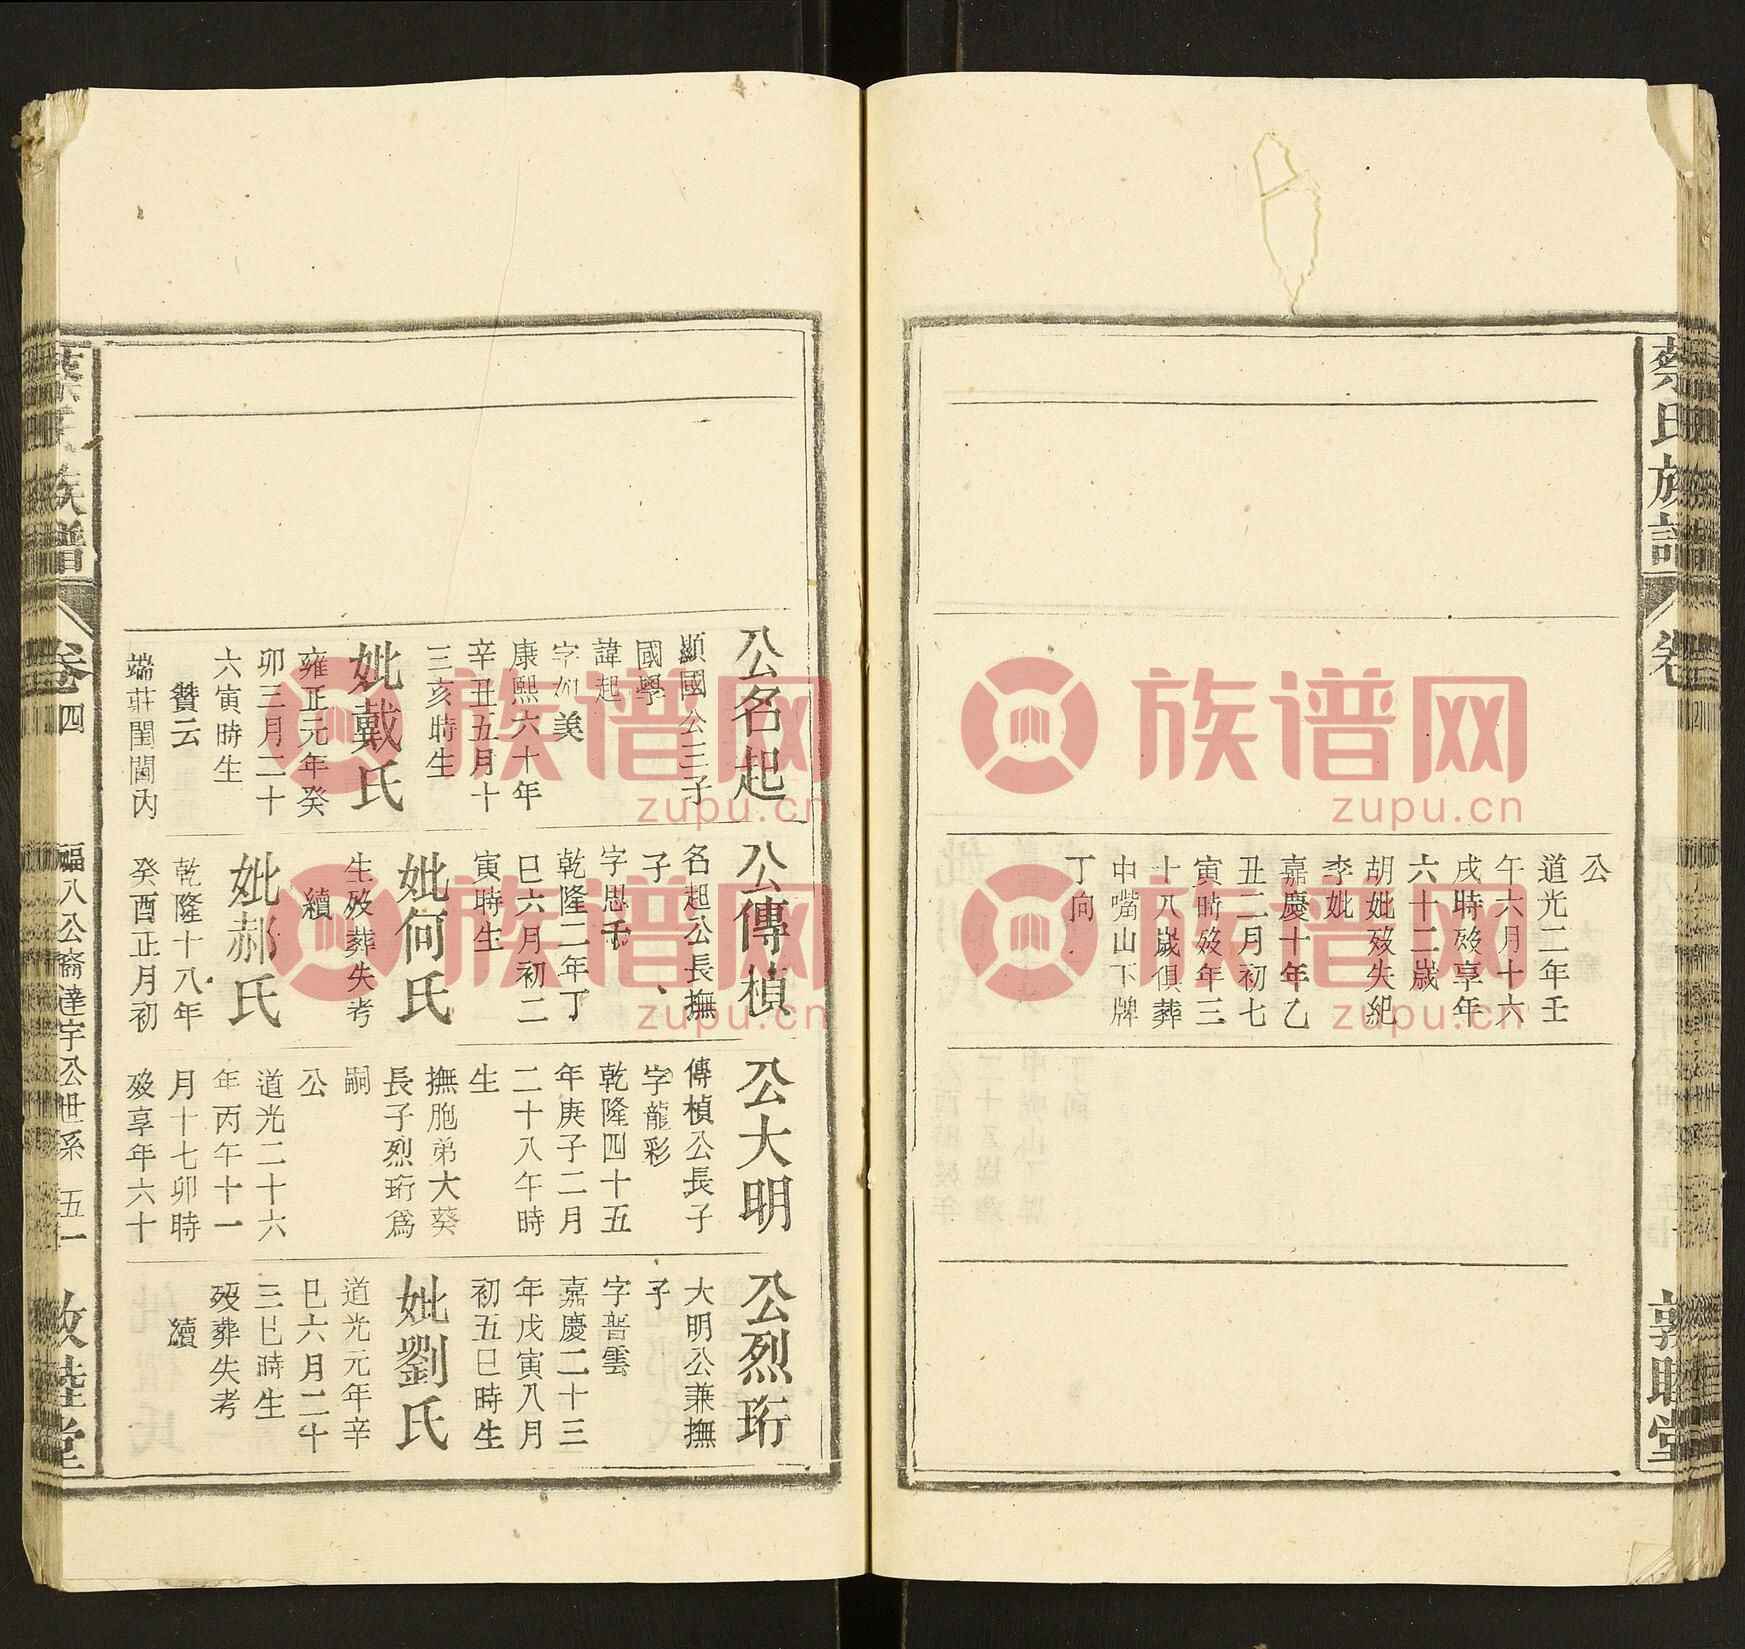 蔡氏族譜
卷
敦睦堂
公
道光二年壬
午六月十六
戌時殁享年
六十二歲
胡妣殁失紀
李妣
嘉慶十年乙
丑二月初七
寅時殁年三
十八歲俱葬
中嘴山下牌
丁向
公名起
顯國公三子
國學
諱起
字如美
康熙六十年
辛丑五月十
三亥時生
妣戴氏
雍正元年癸
卯三月二十
六寅時生
贊云
端莊閨閫內
公傳楨
名起公長撫
子
字思千
乾隆二年丁
巳六月初二
寅時生
妣何氏
生殁葬失考
續
妣郝氏
乾隆十八年
癸酉正月初
公大明
傳楨公長子
字龍彩
乾隆四十五
年庚子二月
二十八午時
生
撫胞弟大葵
長子烈珩爲
嗣
公
道光二十六
年丙午十一
月十七卯時
殁享年六十
公烈珩
大明公兼撫
子
字普雲
嘉慶二十三
年戊寅八月
初五巳時生
妣劉氏
道光元年辛
巳六月二十
三巳時生
殁葬失考
續
蔡氏族譜
卷四
福八公裔達宇公世系 五一
敦睦堂
族谱网
zupu.cn
族谱网
zupu.cn
族谱网
zupu.cn
族谱网
zupu.cn